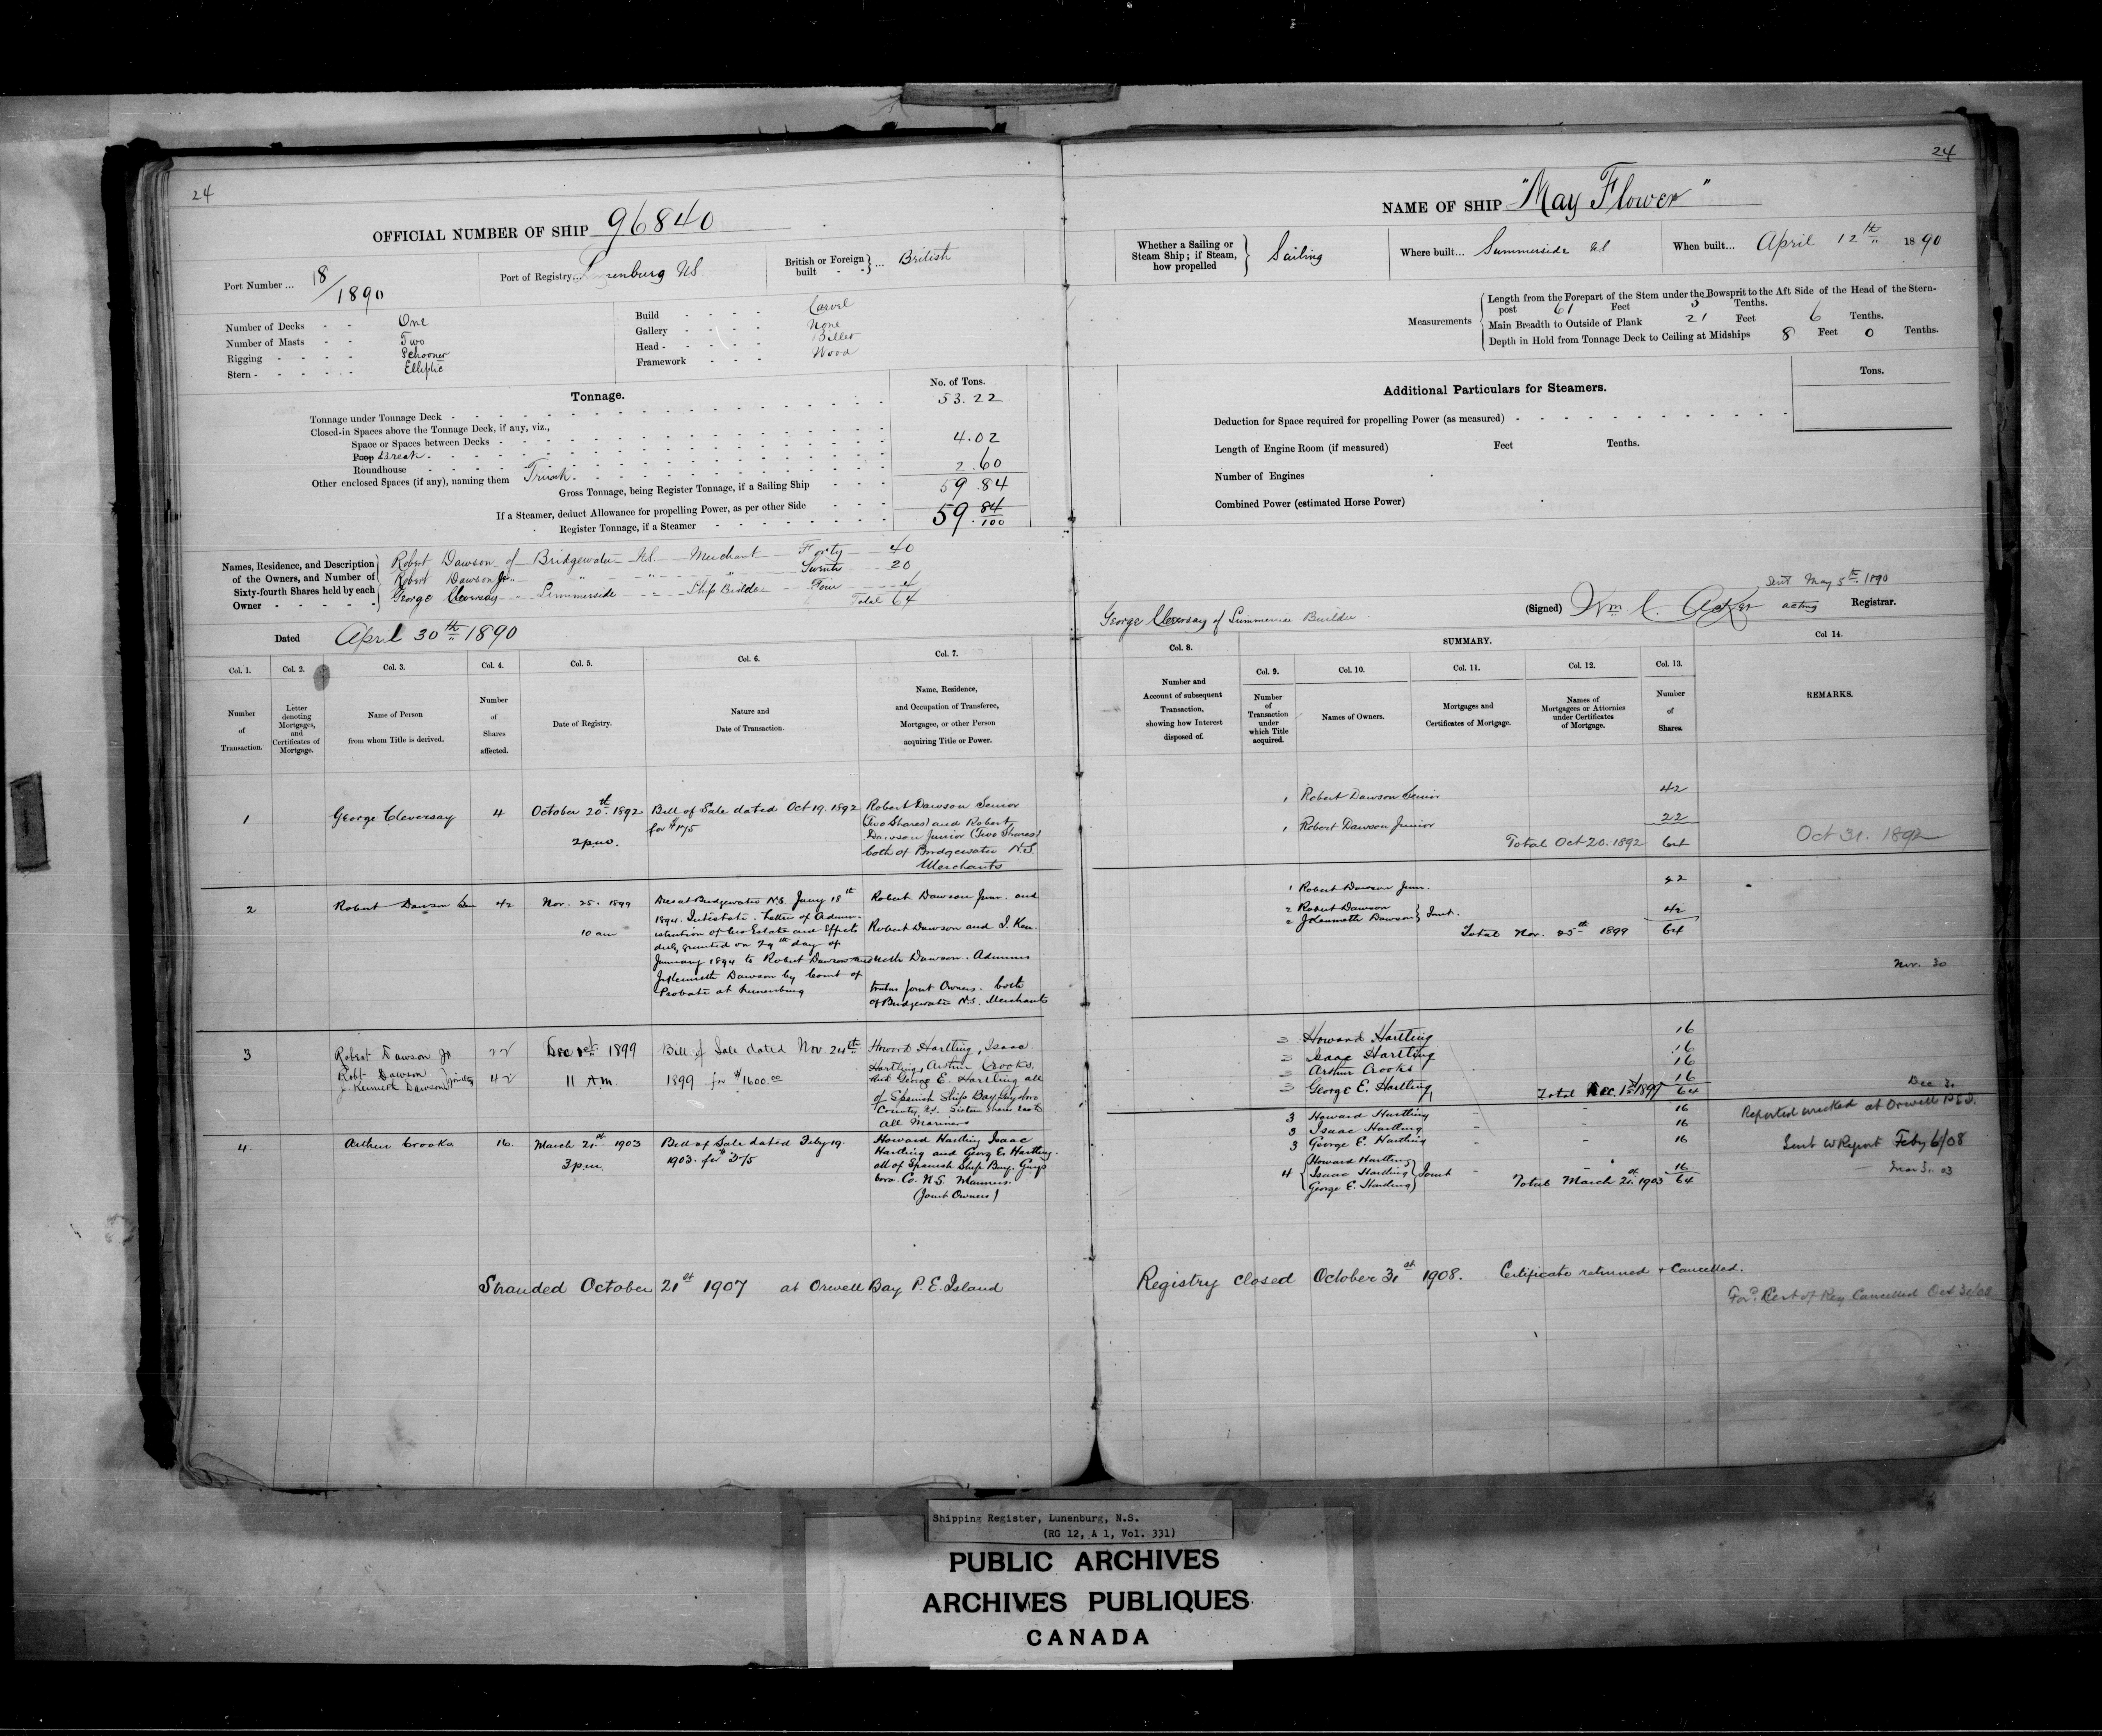 24
OFFICIAL NUMBER OF SHIP 96840
Port Number ... 18/1890
Port of Registry... Lunenburg NS
British or Foreign built - - } ... British
Number of Decks - - One
Number of Masts - - Two
Rigging - - - - Schooner
Stern - - - - - Elliptic
Build - - - - Carvel
Gallery - - - - None
Head - - - - - Billet
Framework - - - Wood
Tonnage.
No. of Tons.
Tonnage under Tonnage Deck - 53.22
Closed-in Spaces above the Tonnage Deck, if any, viz.,
Space or Spaces between Decks - 
Poop Break - 4.02
Roundhouse
Other enclosed Spaces (if any), naming them Trunk. 2.60
Gross Tonnage, being Register Tonnage, if a Sailing Ship - - - 59.84
If a Steamer, deduct Allowance for propelling Power, as per other Side
Register Tonnage, if a Steamer 59.84/100
Names, Residence, and Description of the Owners, and Number of Sixty-fourth Shares held by each Owner
Robert Dawson of Bridgewater NS Merchant Forty 40
Robert Dawson Jr " " " Twenty 20
George Cleversay Summerside " Ship Builder Four 4
Total 64
Dated April 30th 1890
Col. 1. Col. 2. Col. 3. Col. 4. Col. 5. Col. 6. Col. 7.
Number of Transaction.
Letter denoting Mortgages, and Certificates of Mortgage.
Name of Person from whom Title is derived.
Number of Shares affected.
Date of Registry.
Nature and Date of Transaction.
Name, Residence, and Occupation of Transferee, Mortgagee, or other Person acquiring Title or Power.
1 George Cleversay 4 October 20th 1892 Bill of Sale dated Oct 19. 1892 Robert Dawson Senior
2 p.m. for $175 (Two Shares) and Robert
Dawson Junior (Two Shares)
both of Bridgewater N.S.
Merchants
2 Robert Dawson Sen 42 Nov. 25. 1899 Dies at Bridgewater N.S. Jany 18th Robert Dawson Junr. and
10 am 1894. Intestate. Letter of Admin-
istration of his Estate and Effects Robert Dawson and J. Ken-
duly granted on 29th day of
January 1894 to Robert Dawson and neth Dawson. Adminis
J Kenneth Dawson by Court of
Probate at Lunenburg trators Joint Owners. both
of Bridgewater N.S. Merchants
3 Robert Dawson Jr 22 Dec 1st 1899 Bill of Sale dated Nov 24th Howard Hartling, Isaac
Robt Dawson
J Kenneth Dawson } Jointly 42 11 A.M. 1899 for $1600.00 Hartling, Arthur Crooks,
and George E. Hartling all
of Spanish Ship Bay, Guysboro
County, N.S. Sixteen Shares each
All Mariners
4 Arthur Crooks 16 March 21st 1903 Bill of Sale dated Feby 19. Howard Hartling Isaac
3 p.m. 1903. for $375 Hartling and George E. Hartling.
all of Spanish Ship Bay. Guys
boro. Co. N.S. Mariners.
(Joint Owners)
Stranded October 21st 1907 at Orwell Bay P.E. Island
24
NAME OF SHIP "May Flower"
Whether a Sailing or Steam Ship; if Steam, how propelled } Sailing
Where built... Summerside NS
When built... April 12th 1890
Measurements
Length from the Forepart of the Stem under the Bowsprit to the Aft Side of the Head of the Stern-
post 61 Feet 3 Tenths.
Main Breadth to Outside of Plank 21 Feet 6 Tenths.
Depth in Hold from Tonnage Deck to Ceiling at Midships 8 Feet 0 Tenths.
Additional Particulars for Steamers.
Tons.
Deduction for Space required for propelling Power (as measured)
Length of Engine Room (if measured) Feet Tenths.
Number of Engines
Combined Power (estimated Horse Power)
Sent May 5th 1890
(Signed) Wm C. Acker acting Registrar.
George Cleversay of Summerside Builder
Col. 8. SUMMARY. Col 14.
Col. 9. Col. 10. Col. 11. Col. 12. Col. 13.
Number and Account of subsequent Transaction, showing how Interest disposed of.
Number of Transaction under which Title acquired.
Names of Owners.
Mortgages and Certificates of Mortgage.
Names of Mortgagees or Attornies under Certificates of Mortgage.
Number of Shares.
REMARKS.
1 Robert Dawson Senior 42
1 Robert Dawson Junior 22
Total Oct 20. 1892 64 Oct 31. 1892
1 Robert Dawson Junr. 22
2 Robert Dawson
2 J Kenneth Dawson } Joint. 42
Total Nov. 25th 1899 64
Nov. 30
3 Howard Hartling 16
3 Isaac Hartling 16
3 Arthur Crooks 16
3 George E. Hartling 16
Total Dec. 1st 1899 64 Dec
3 Howard Hartling - 16 Reported wrecked at Orwell P.E.I.
3 Isaac Hartling - 16
3 George E. Hartling - 16 Sent W Report Feby 6/08
4 { Howard Hartling
Isaac Hartling
George E. Hartling } Joint - 16 Mar 31. 03
Total March 21st 1903 64
Registry closed October 31st 1908. Certificate returned & Cancelled.
For'd. Cert of Reg Cancelled Oct 31/08
Shipping Register, Lunenburg, N.S.
(RG 12, A 1, Vol. 331)
PUBLIC ARCHIVES
ARCHIVES PUBLIQUES
CANADA